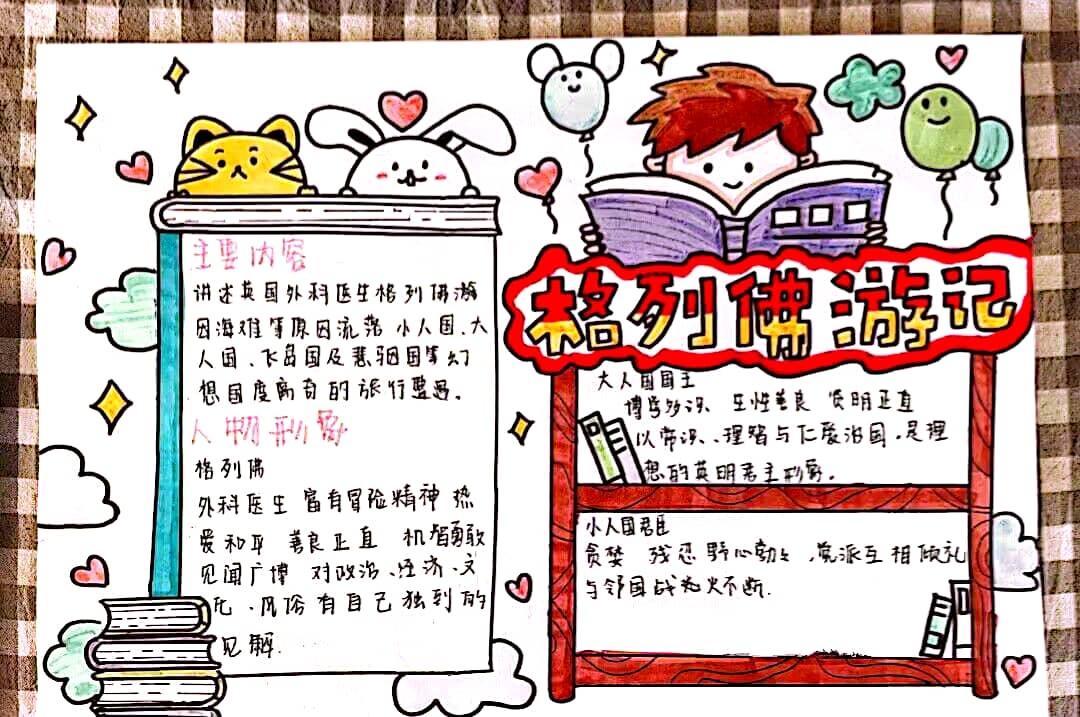 格列佛游记
主要内容
讲述英国外科医生格列佛游
因海难等原因流落小人国、大
人国、飞岛国及慧骃国等幻
想国度离奇的旅行遭遇。
人物形象
格列佛
外科医生 富有冒险精神 热
爱和平 善良正直 机智勇敢
见闻广博 对政治、经济、文
化、风俗有自己独到的
见解.
大人国国王
博学多识、生性善良 贤明正直
以常识、理智与仁爱治国,是理
想的英明君主形象。
小人国君臣
贪婪 残忍 野心勃勃,党派互相倾轧
与邻国战火不断.